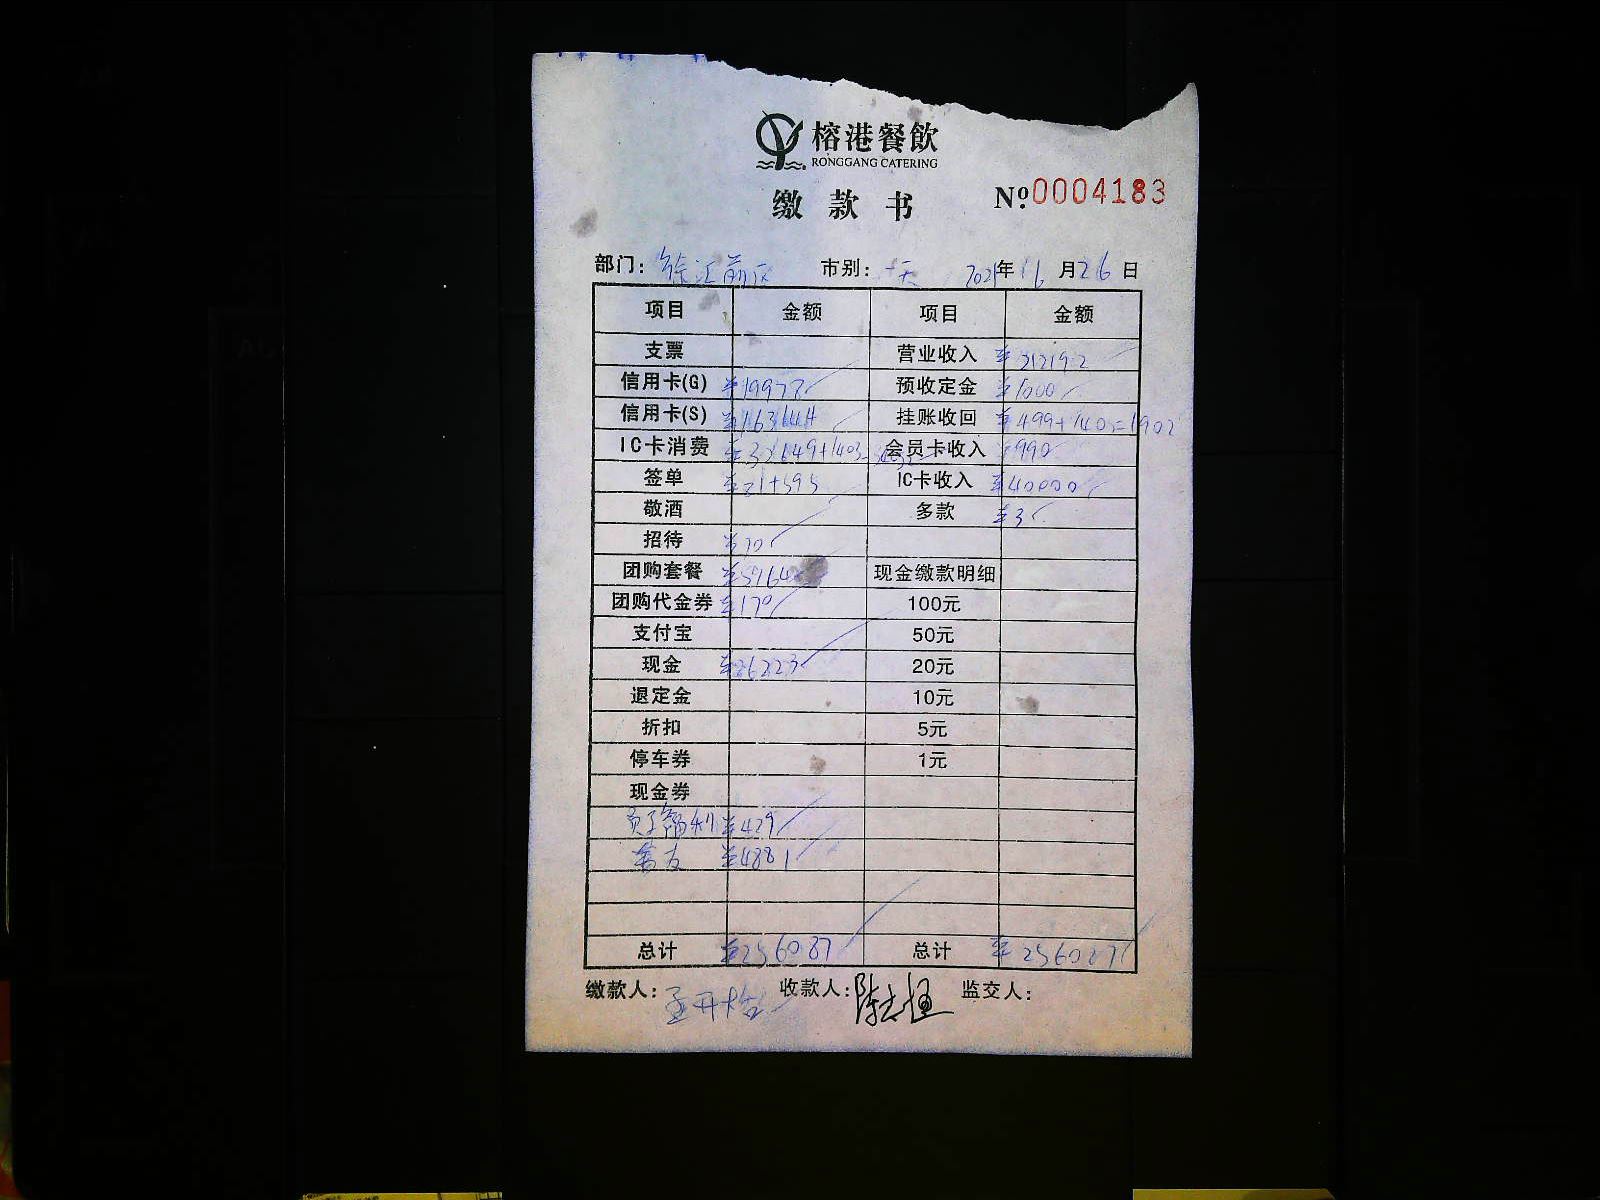 榕港餐飲
RONGGANG CATERING
缴款书 №:0004183
部门: 徐汇前区 市别: 一天 2021年 月26日
项目 金额 项目 金额
支票 营业收入
信用卡(G) ¥19978 预收定金 ¥1000
信用卡(S) ¥163144 挂账收回 ¥499+1403=1902
IC卡消费 ¥32649+1403 会员卡收入 ¥990
签单 IC卡收入 ¥40000
敬酒 多款 ¥3
招待
团购套餐 ¥5964 现金缴款明细
团购代金券 ¥170 100元
支付宝 50元
现金 ¥26223 20元
退定金 10元
折扣 5元
停车券 1元
现金券
员工福利 ¥429
¥4881
总计 ¥256087 总计 ¥256087
缴款人: 收款人: 监交人: